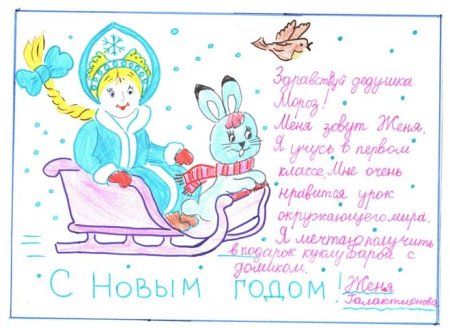 Здравствуй дедушка
Мороз!
Меня зовут Женя.
Я учусь в первом
классе. Мне очень
нравится урок
окружающего мира.
Я мечтаю получить
в подарок куклу Барби с
домиком.
Женя
Галактионова
С Новым годом!